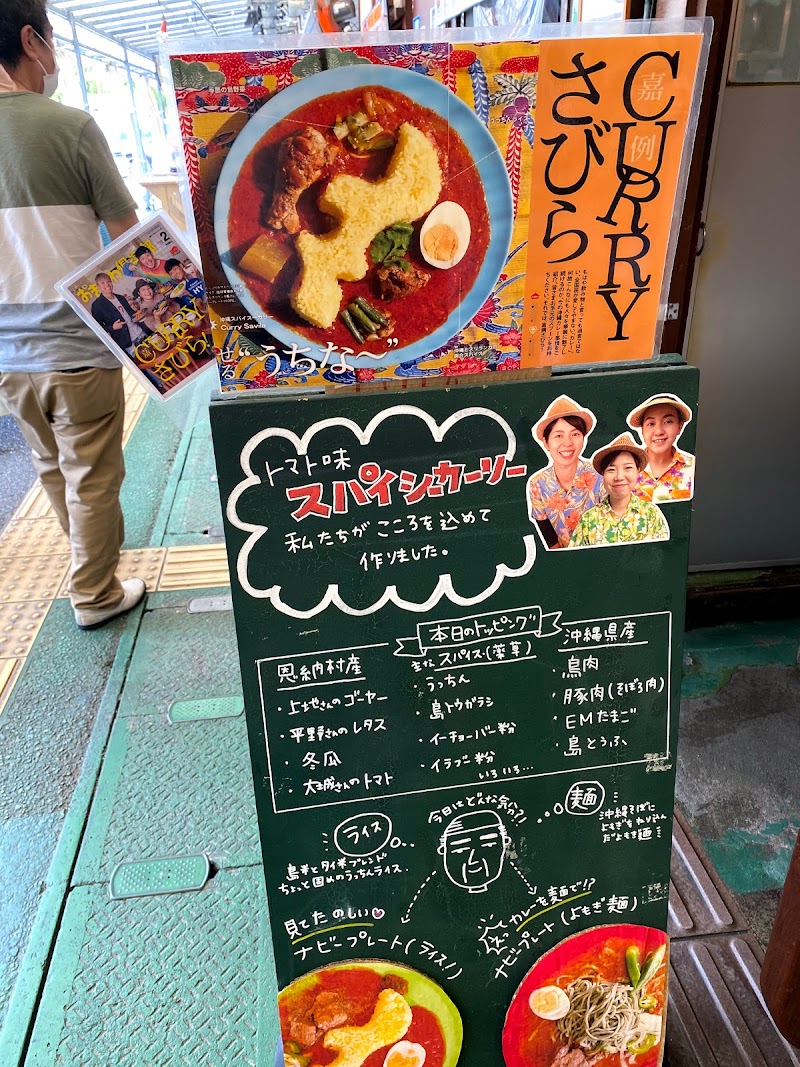 季節の島野菜
うっちんライス
嘉例
CURRY
さびら
沖縄スパイスカーリー
Curry Savila
せる
“うちな〜”
2
CURRY
さびら
トマト味
スパイシーカーリー
私たちが こころを込めて
作りました。
本日のトッピング
恩納村産
・上地さんのゴーヤー
・平野さんのレタス
・冬瓜
・大城さんのトマト
主なスパイス(薬草)
・うっちん
・島トウガラシ
・イーチョーバー粉
・イラブー粉
いろいろ…
沖縄県産
・鳥肉
・豚肉(そぼろ肉)
・EMたまご
・島とうふ
今日はどんな気分?!
ライス
島米とタイ米ブレンド
ちょっと固めのうっちんライス.
麺
沖縄そばに
よもぎをねり込ん
だよもぎ麺
見てたのしい
ナビープレート(ライス!)
カレーを麺で!?
ナビープレート(よもぎ麺)